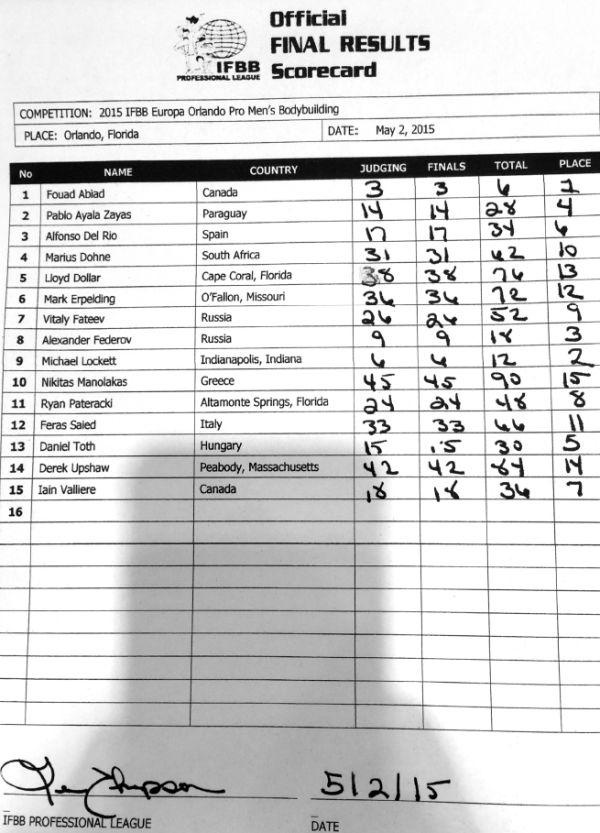 Official
FINAL RESULTS
Scorecard
IFBB
PROFESSIONAL LEAGUE
COMPETITION: 2015 IFBB Europa Orlando Pro Men's Bodybuilding
PLACE: Orlando, Florida DATE: May 2, 2015
No NAME COUNTRY JUDGING FINALS TOTAL PLACE
1 Fouad Abiad Canada 3 3 6 1
2 Pablo Ayala Zayas Paraguay 14 14 28 4
3 Alfonso Del Rio Spain 17 17 34 6
4 Marius Dohne South Africa 31 31 62 10
5 Lloyd Dollar Cape Coral, Florida 38 38 76 13
6 Mark Erpelding O'Fallon, Missouri 36 36 72 12
7 Vitaly Fateev Russia 26 26 52 9
8 Alexander Federov Russia 9 9 18 3
9 Michael Lockett Indianapolis, Indiana 6 6 12 2
10 Nikitas Manolakas Greece 45 45 90 15
11 Ryan Pateracki Altamonte Springs, Florida 24 24 48 8
12 Feras Saied Italy 33 33 66 11
13 Daniel Toth Hungary 15 15 30 5
14 Derek Upshaw Peabody, Massachusetts 42 42 84 14
15 Iain Valliere Canada 18 18 36 7
16
5/2/15
IFBB PROFESSIONAL LEAGUE DATE